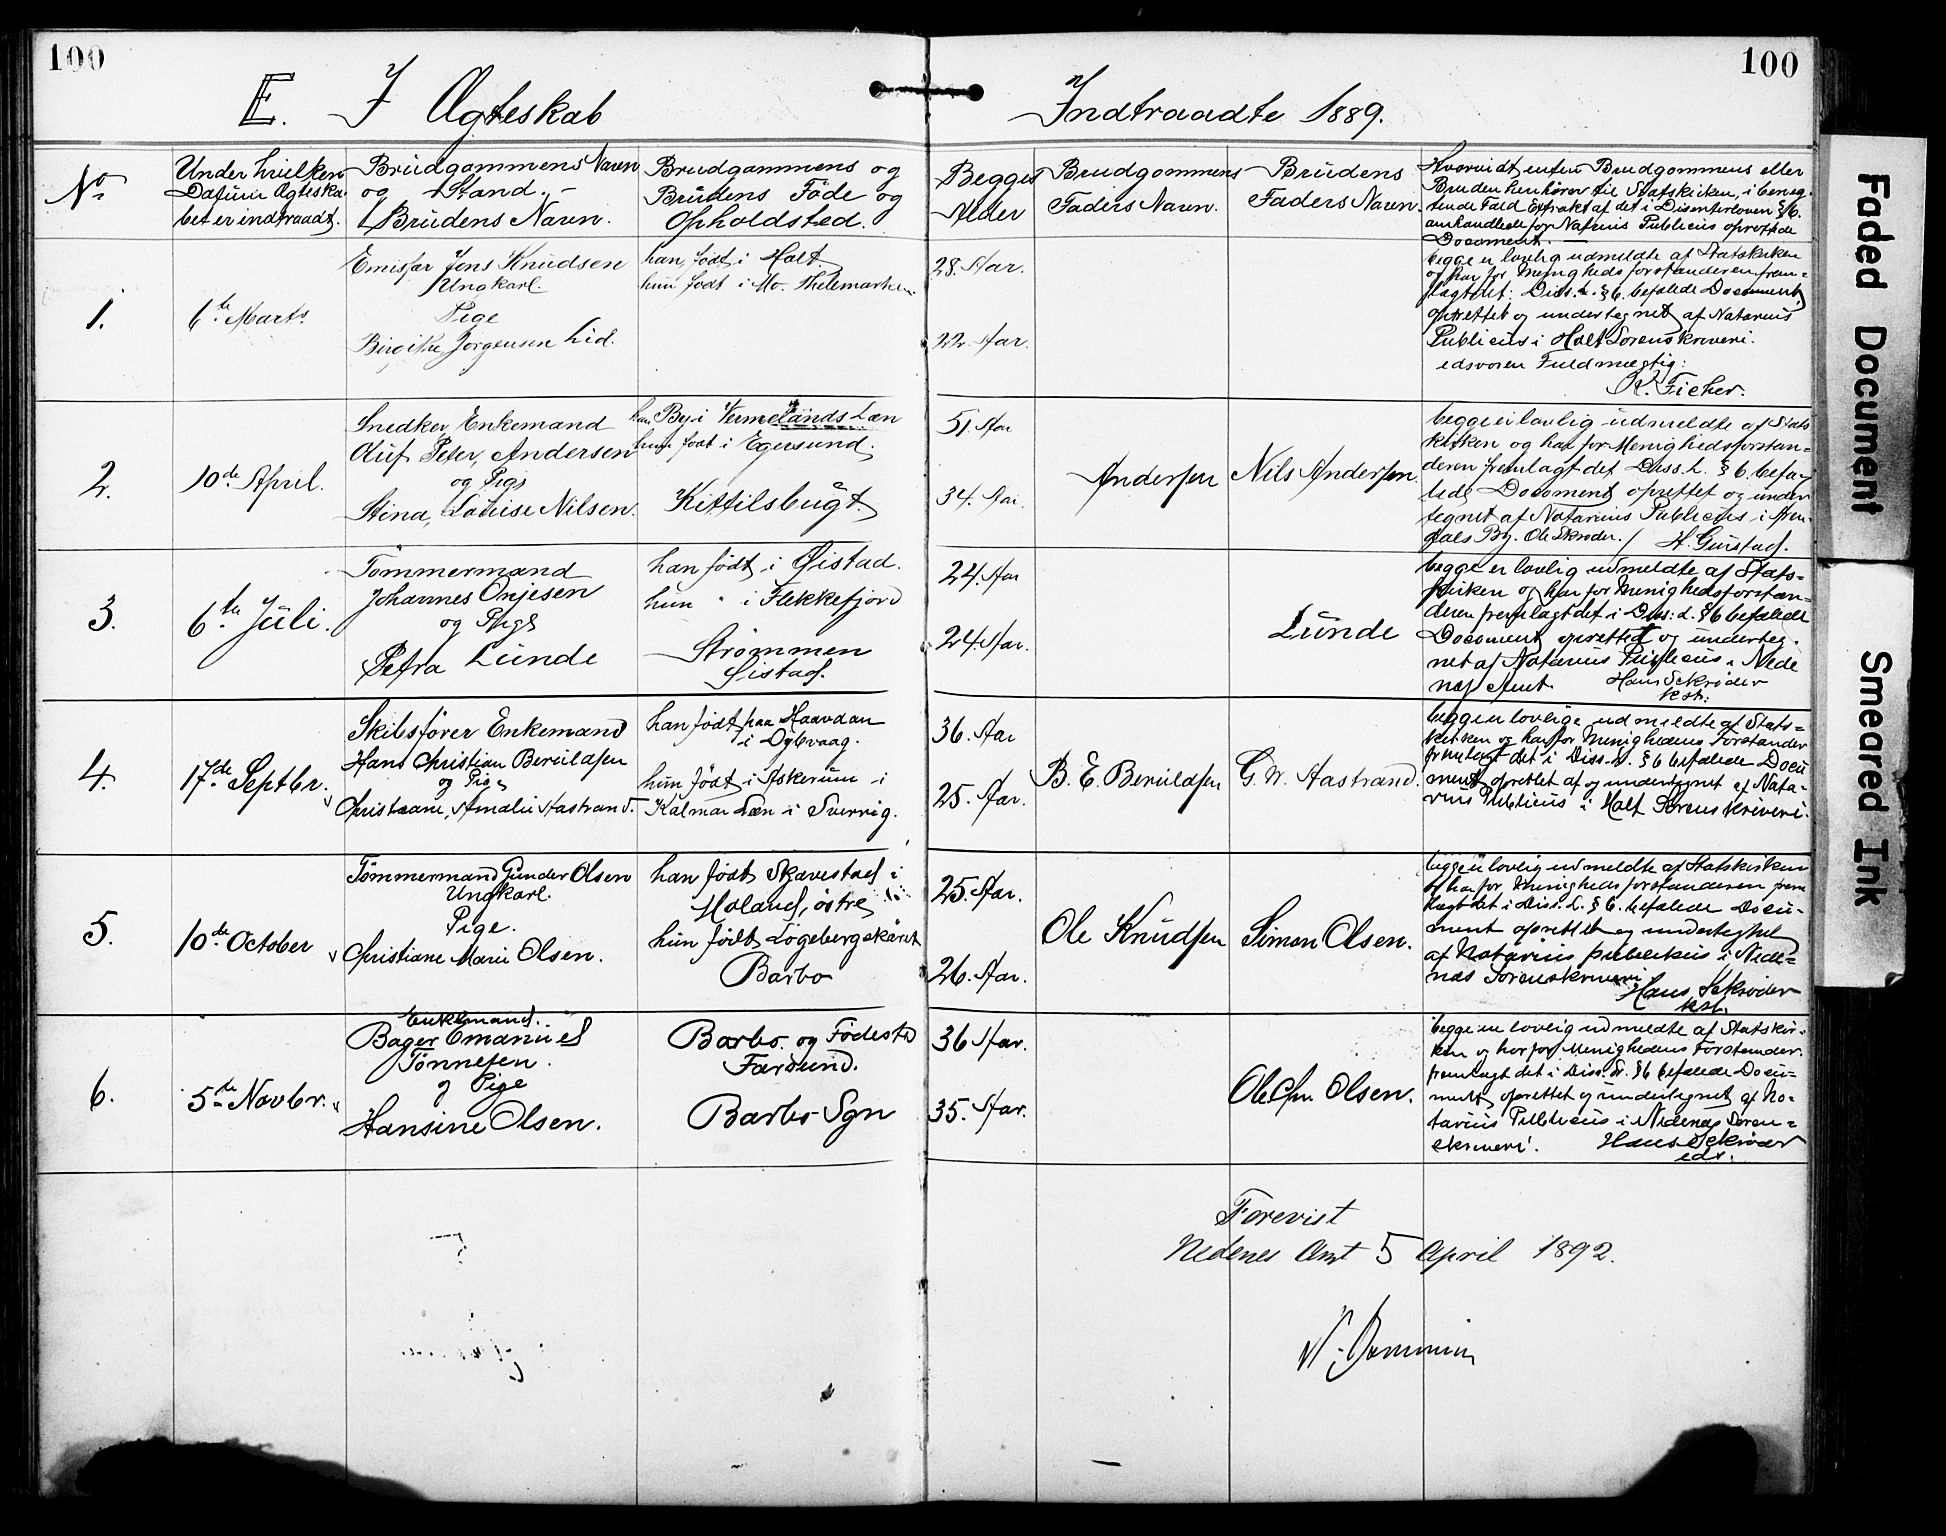 100
100
E. I Ægteskab
Indtraadte 1889.
No
Under hvilken
Datum Ægteska
bet er indtraadt.
Brudgommens Navn
og Stand. -
Brudens Navn.
Brudgommens og
Brudens Føde og
Opholdsted.
Begges
Alder
Brudgommens
Faders Navn.
Brudens
Faders Navn.
Hvorvidt enten Brudgommens eller
Bruden henhører til Statskirken, i beneg-
tende Fald Extrakt af det i Disenterloven § 6.
omhandlede for Notarius Publicus oprettede
Document. -
1.
6te Marts.
Emisær Jens Knudsen
Ungkarl.
Pige
Birgithe Jørgensen Lid.
han født i Holt.
hun født i Mo. Thelemarken
28. Aar.
22. Aar.
begge er lovlig udmeldte af Statskirken
og har for Menighedsforstanderen frem-
lagt det: Diss. L. § 6. befalede Document
oprettet og undertegnet af Notarius
Publicus i Holt Sorenskriveri.
edsvoren Fuldmægtig:
2.
10de April.
Snedker Enkemand
Oluf Peter, Andersen
og Pige
Stina, Lovise Nilsen.
han By i Vermelands Læn
hun født i Egersund.
Kittilsbugt
51. Aar
34. Aar.
Andersen
Nils Andersen.
begge er lovlig udmeldte af Stats
kirken og har for Menighedsforstan-
deren fremlagt det Diss. L. § 6. befa-
lede Document oprettet og under
tegnet af Notarius Publicus i Aren-
dals By. Ole Skrøder. / H. Gunstad.
3.
6te Juli.
Tømmermand
Johannes Onjesen
og Pige
Petra Lunde
han født i Øistad.
hun " i Flekkefjord
Strømmen
Øistad.
24. Aar
24. Aar.
Lunde
begge er lovlig udmeldte af Stats-
kirken og har for Menighedsforstan-
deren fremlagt det i Diss. L. § 6 befalede
Document oprettet og underteg-
net af Notarius Publicus i Nede
næs Amt. Hans Schrøder
kst.
4.
17de Septbr.
Skibsfører Enkemand
Hans Christian Beruldsen
og Pige
Christiane, Amalie Aastrand.
han født paa Haavdan
i Dybvaag.
hun født i Askerum i
Kalmar Læn i Sverrig.
36. Aar
25. Aar.
B. E. Beruldsen
G. W. Aastrand.
begge er lovlige udmeldte af Stats-
kirken og har for Menighedens Forstander
fremlagt det i Diss. L. § 6 befalede Docu
ment oprettet af og undertegnet af Nota-
rius Publicus i Holt Sorenskriveri.
5.
10de October
Tømmermand Gunder Olsen
Ungkarl.
Pige.
Christiane Marie Olsen.
han født Skjævestad i
Moland, østre
hun født Løgebergskåret
Barbo
25. Aar.
26. Aar.
Ole Knudsen
Simon Olsen.
begge er lovlig udmeldte af Statskirken
og har for Menighedsforstanderen frem
lagt det i Diss. L. § 6. befalede Docu-
ment oprettet og undertegnet
af Notarius publikus i Nede-
næs Sorenskriveri
Hans Schrøder
kst.
6.
5te Novbr.
Enkemand.
Bager Emanuel
Tønnesen.
og Pige
Hansine Olsen.
Barbo. og Fødested
Farsund.
Barbo Sgn
36 Aar.
35. Aar.
Ole Chr. Olsen.
begge er lovlig udmeldte af Statskir-
ken og har for Menighedens Forstander
fremlagt det i Diss. L. § 6 befalede Docu-
ment oprettet og undertegnet af No-
tarius Publicus i Nedenæs Soren-
skriveri. Hans Schrøder
eds.
Forevist
Nedenes Amt 5 April 1892.
Faded Document
Smeared Ink